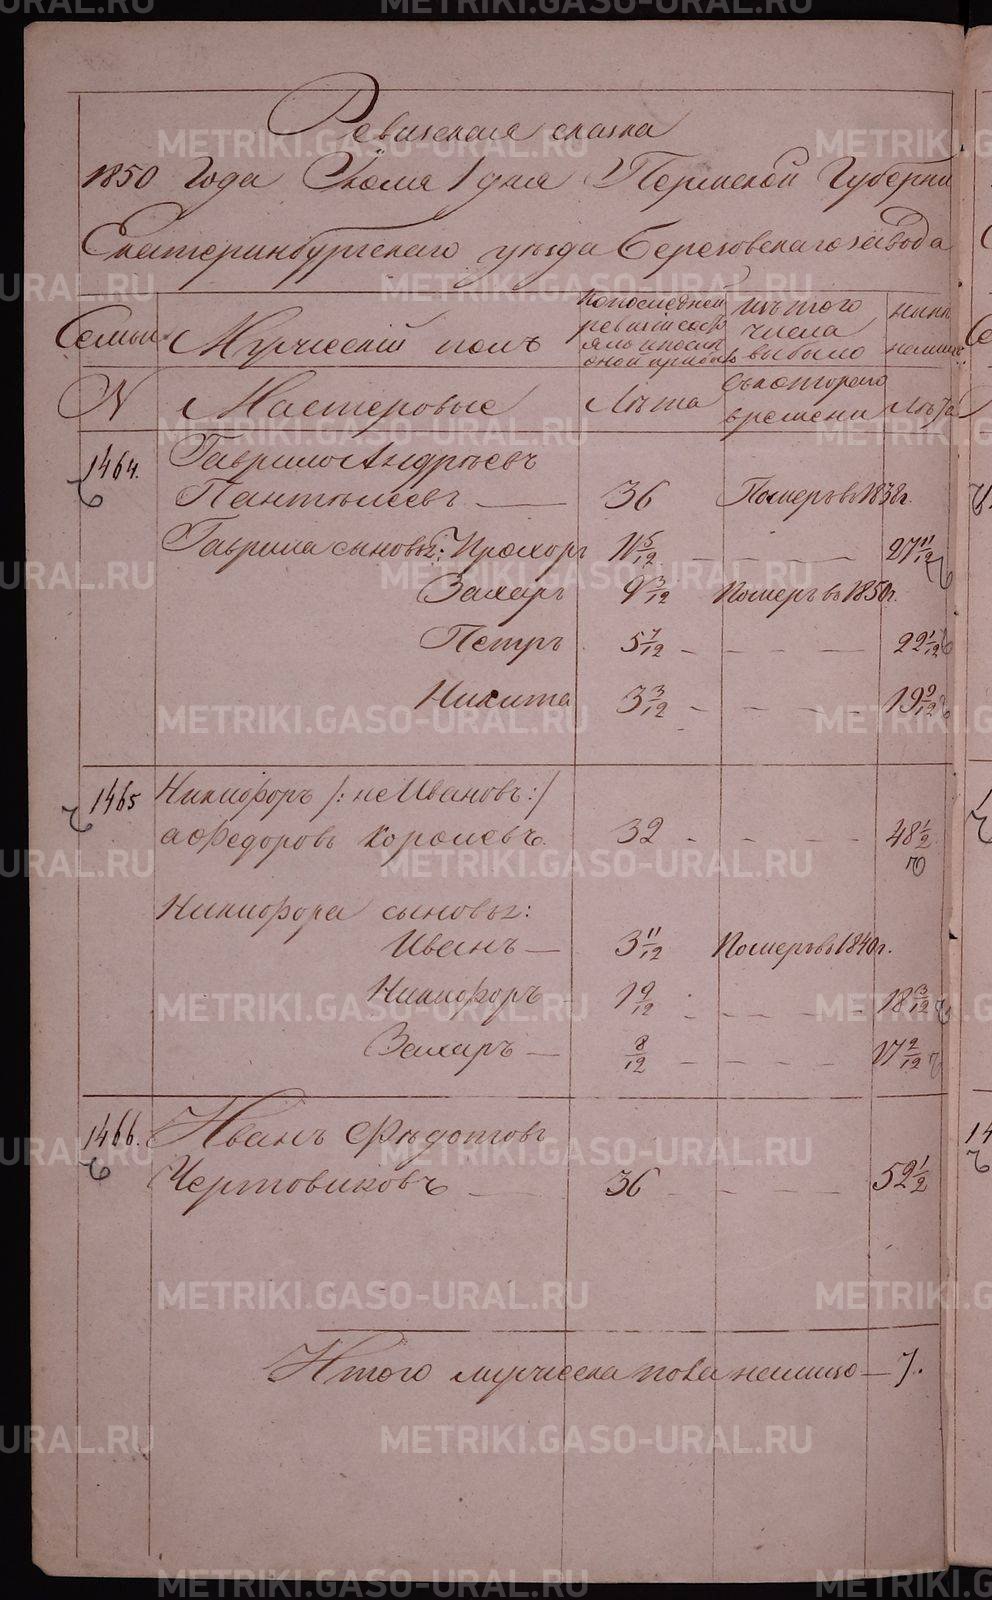 Ревизская сказка
1850 Года Июля 1 дня Пермской Губерни
Екатеринбургскаго уезда Березовскаго завода
Семьи Мужеский полъ По последней ревизіи состояло и после оной прибыло Изъ того числа выбыло ныне на лицо
N Мастеровые Лета Съ котораго времени Лета
1464. Гаврило Андреевъ
Пантелеевъ — 36 Померъ въ 1838 г.
Гаврила сыновья: Прохоръ 11 5/12 — — — 27 11/12
Захаръ 9 3/12 Померъ въ 1850 г.
Петръ 5 7/12 — — — 22 1/12
Никита 3 3/12 — — — 19 9/12
1465 Никифоръ /: не Ивановъ :/
а Федоровъ Королевъ. 32 — — — 48 1/2
Никифора сыновья:
Иванъ — 3 11/12 Померъ въ 1840 г.
Никифоръ 1 9/12 — — — 18 3/12
Захаръ — 8/12 — — — 17 2/12
1466. Иванъ Федотовъ
Чертовиковъ — 36 — — — 52 1/2
Итого мужеска пола на лицо — 7.
METRIKI.GASO-URAL.RU